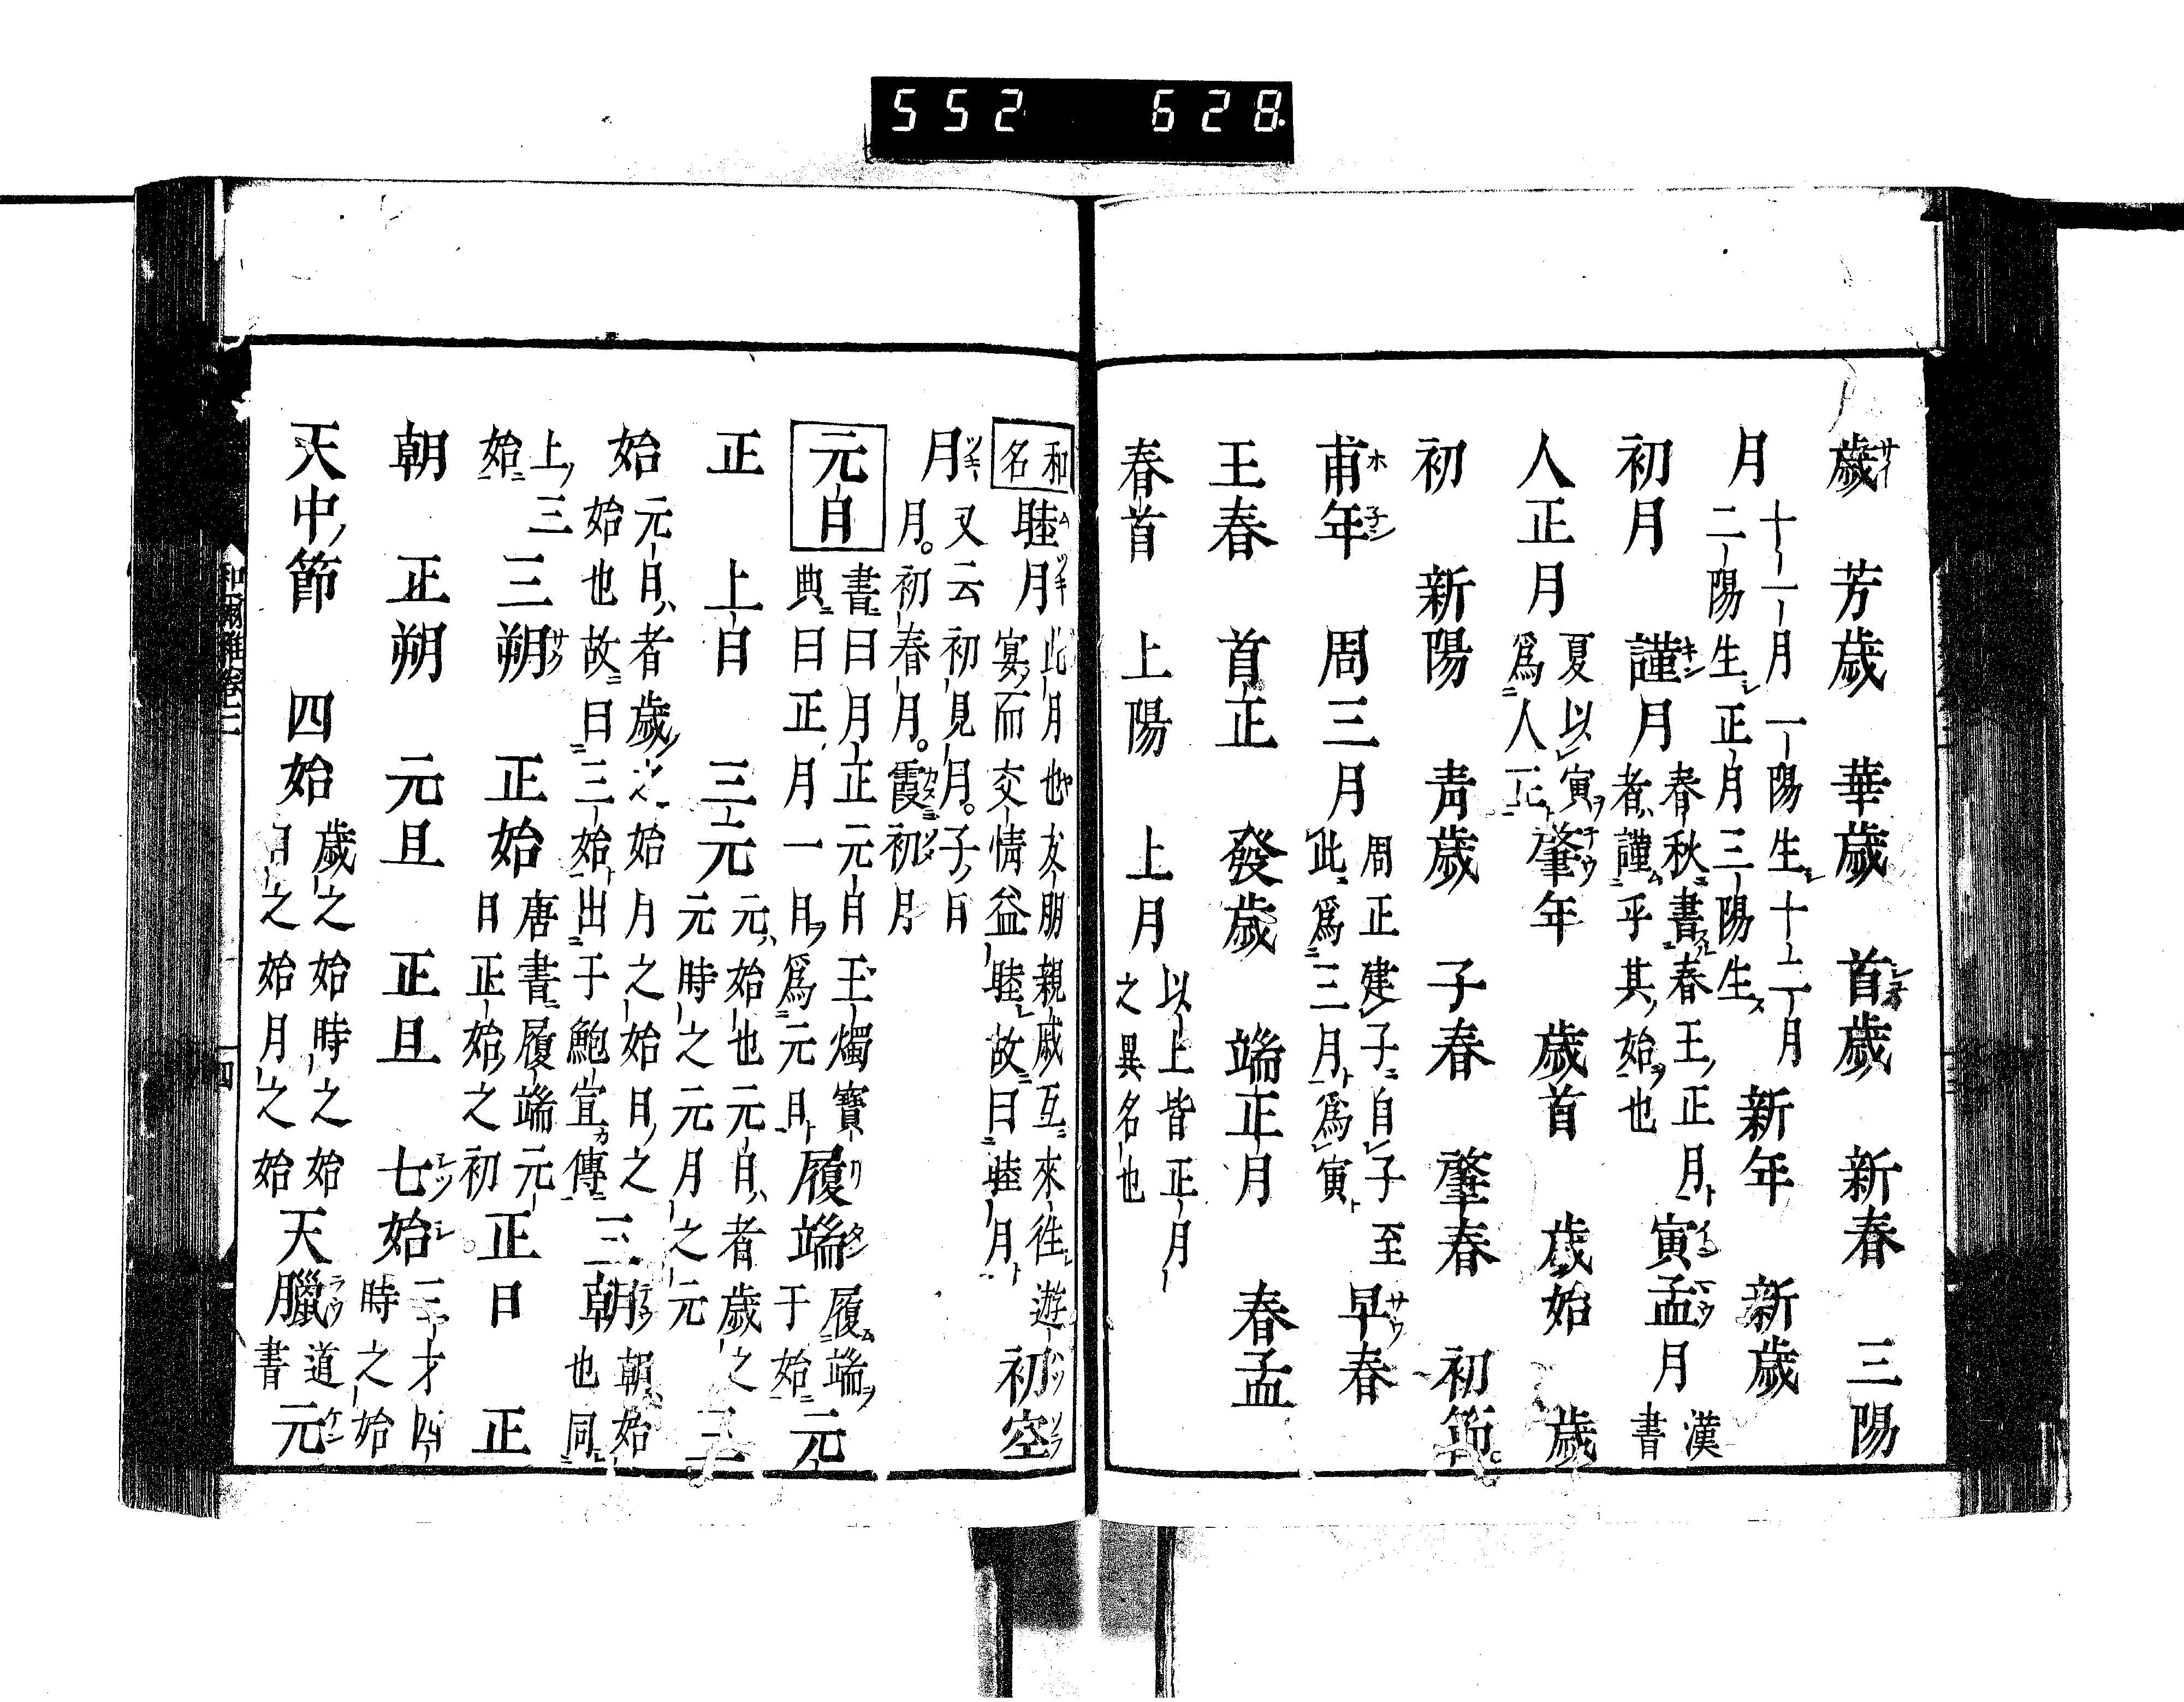 552 628
歲 芳歲 華歲 首歲 新春 三陽
月 十一月一陽生十二月二陽生正月三陽生 新年 新歲
初月 謹月 春秋書春王正月者謹乎其始也 寅孟月 漢書
人正月 夏以寅爲人正 肇年 歲首 歲始 歲
初 新陽 青歲 子春 肇春 初節
甫年 周三月 周正建子自子至此爲三月爲寅 早春
王春 首正 發歲 端正月 春孟
春首 上陽 上月 以上皆正月之異名也
和名 睦月 此月也友朋親戚互來往遊宴而交情益睦故曰睦月 初空
月 又云初見月。子日月。初春月。霞初月
元日 書曰月正元日 典曰正月一日爲元日 玉燭寶 履端 履端于始 元
正 上日 三元 元始也元日者歲之元時之元月之元 三
始 元日者歲之始月之始日之始也故曰三始出于鮑宣傳 三朝 朝始也同
上三始 三朔 正始 唐書履端元日正始之初 正日 正
朝 正朔 元旦 正旦 七始 三才四時之始
天中節 四始 歲之始時之始日之始月之始 天臘 道書 元
和爾雅卷二
四